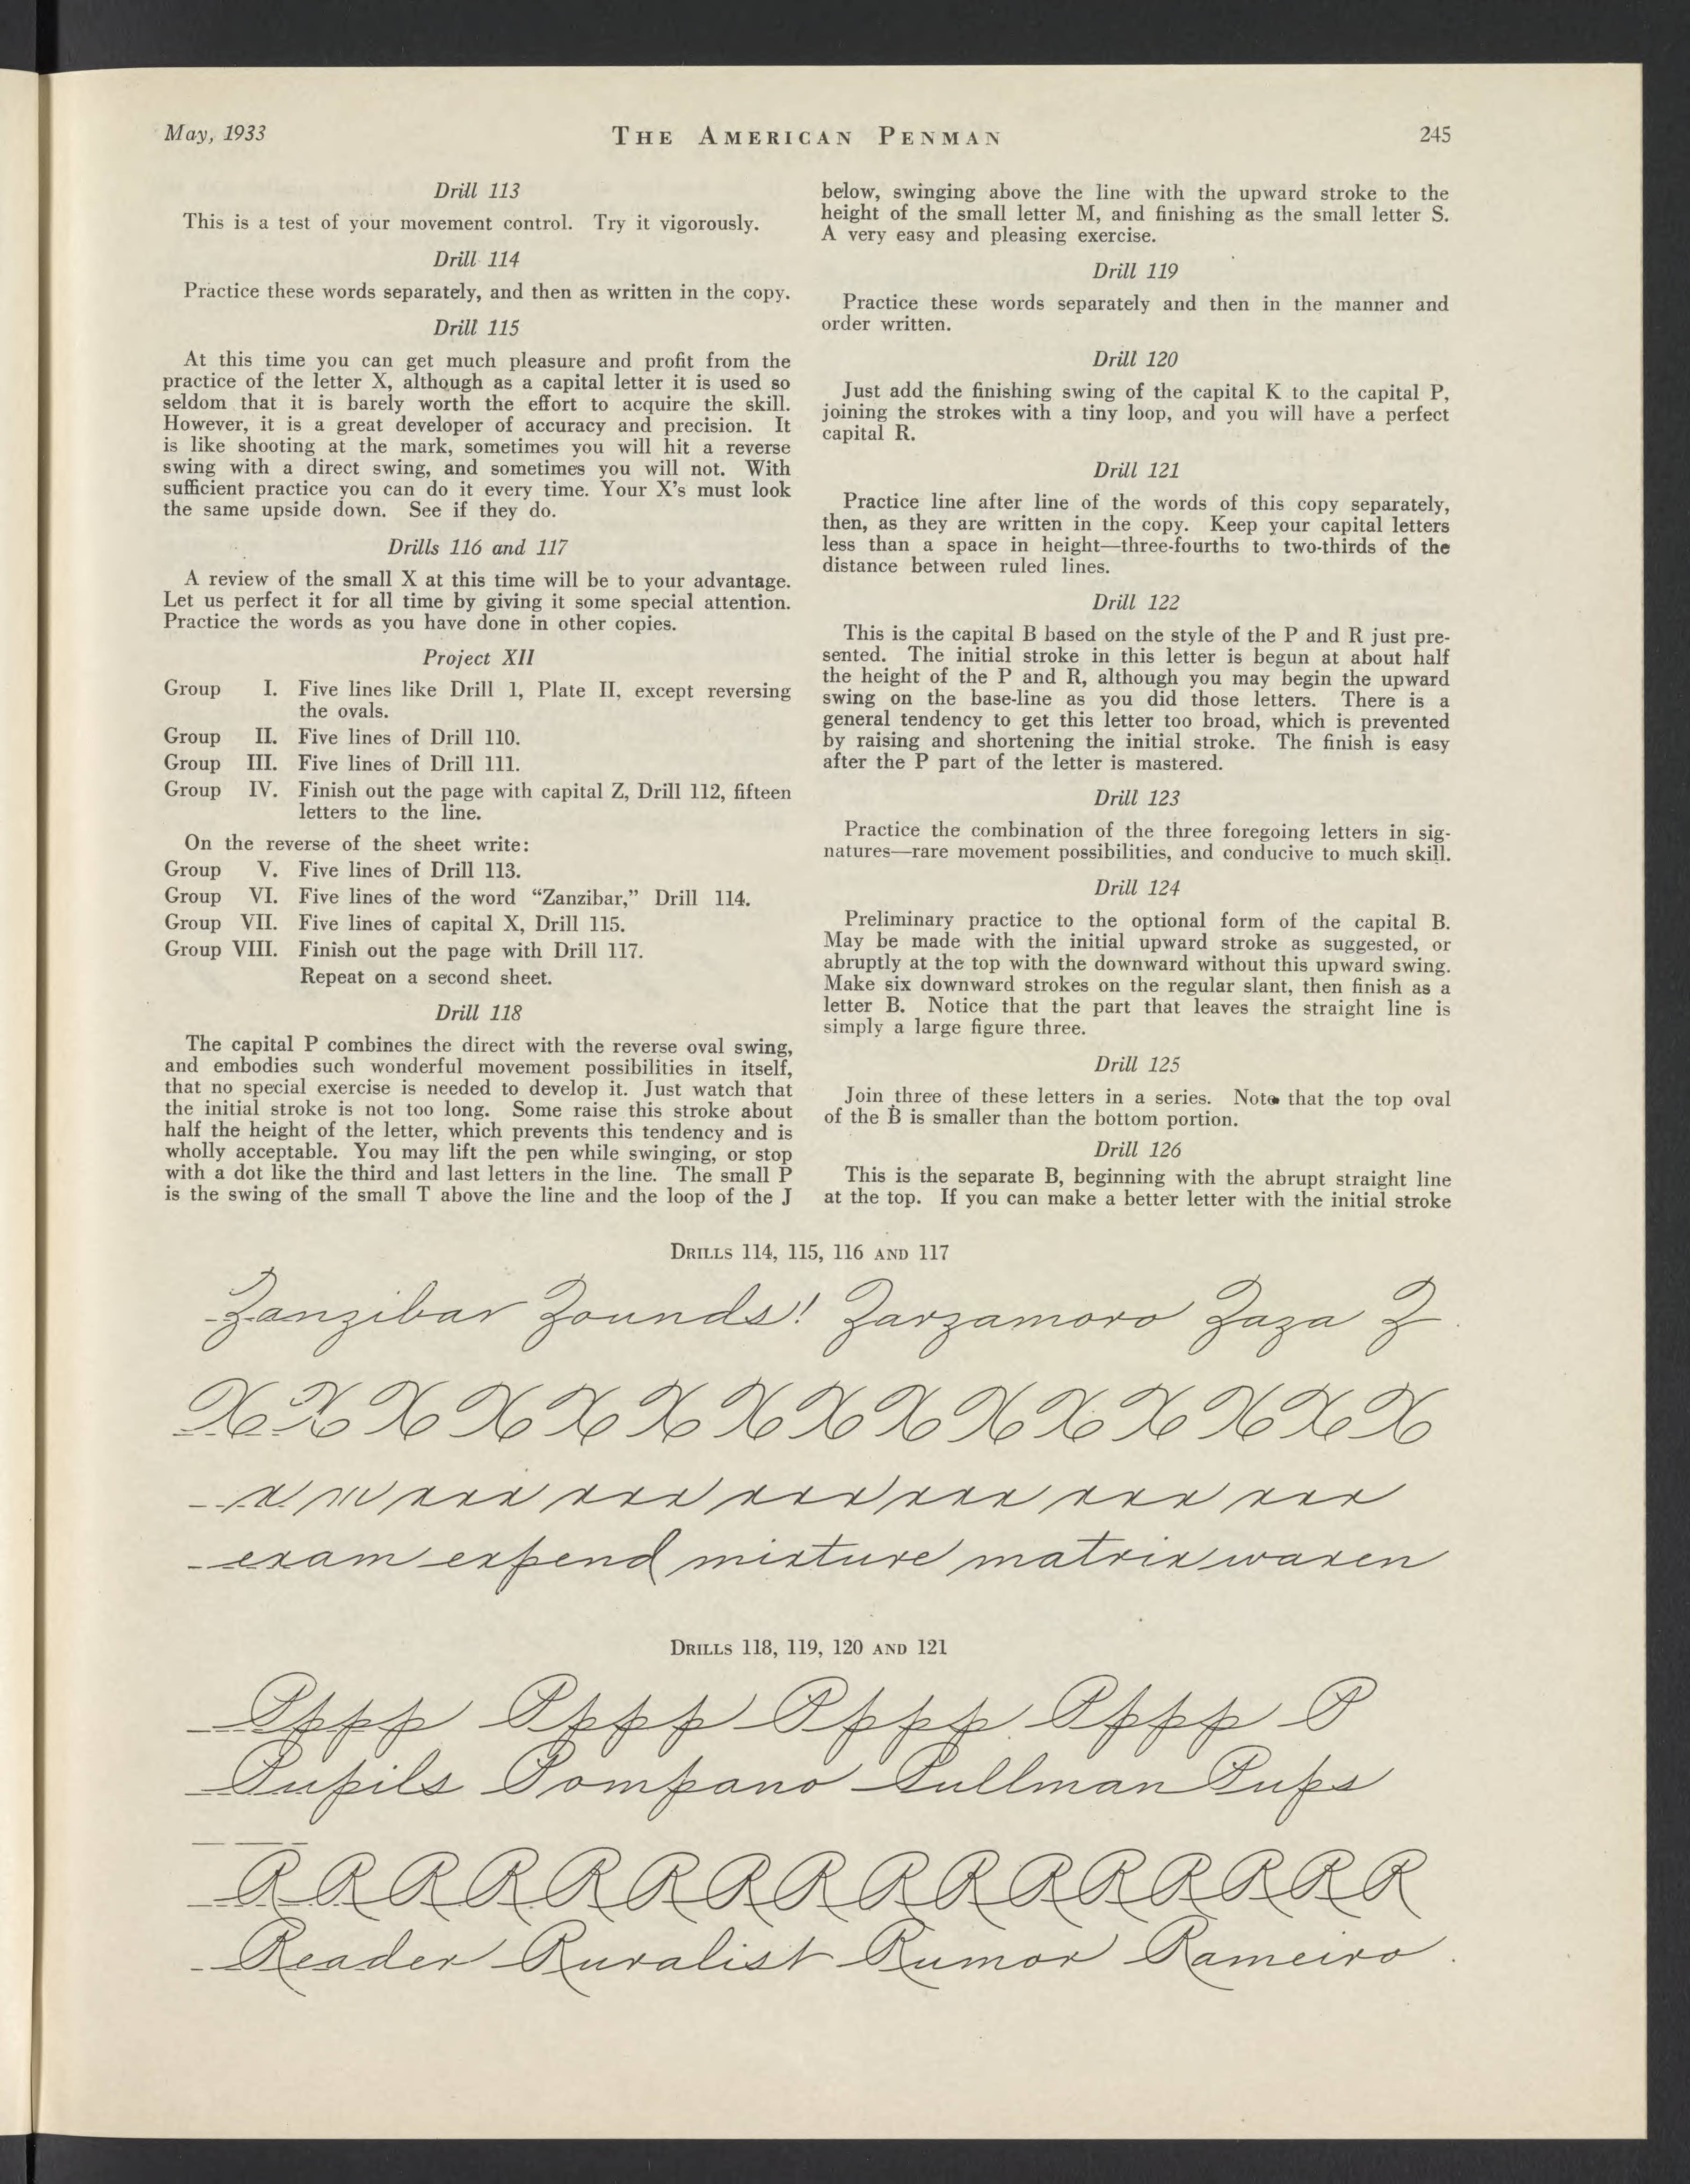 May, 1933
THE AMERICAN PENMAN
245
Drill 113
This is a test of your movement control. Try it vigorously.
Drill 114
Practice these words separately, and then as written in the copy.
Drill 115
At this time you can get much pleasure and profit from the
practice of the letter X, although as a capital letter it is used so
seldom that it is barely worth the effort to acquire the skill.
However, it is a great developer of accuracy and precision. It
is like shooting at the mark, sometimes you will hit a reverse
swing with a direct swing, and sometimes you will not. With
sufficient practice you can do it every time. Your X's must look
the same upside down. See if they do.
Drills 116 and 117
A review of the small X at this time will be to your advantage.
Let us perfect it for all time by giving it some special attention.
Practice the words as you have done in other copies.
Project XII
Group I. Five lines like Drill 1, Plate II, except reversing
the ovals.
Group II. Five lines of Drill 110.
Group III. Five lines of Drill 111.
Group IV. Finish out the page with capital Z, Drill 112, fifteen
letters to the line.
On the reverse of the sheet write:
Group V. Five lines of Drill 113.
Group VI. Five lines of the word “Zanzibar,” Drill 114.
Group VII. Five lines of capital X, Drill 115.
Group VIII. Finish out the page with Drill 117.
Repeat on a second sheet.
Drill 118
The capital P combines the direct with the reverse oval swing,
and embodies such wonderful movement possibilities in itself,
that no special exercise is needed to develop it. Just watch that
the initial stroke is not too long. Some raise this stroke about
half the height of the letter, which prevents this tendency and is
wholly acceptable. You may lift the pen while swinging, or stop
with a dot like the third and last letters in the line. The small P
is the swing of the small T above the line and the loop of the J
below, swinging above the line with the upward stroke to the
height of the small letter M, and finishing as the small letter S.
A very easy and pleasing exercise.
Drill 119
Practice these words separately and then in the manner and
order written.
Drill 120
Just add the finishing swing of the capital K to the capital P,
joining the strokes with a tiny loop, and you will have a perfect
capital R.
Drill 121
Practice line after line of the words of this copy separately,
then, as they are written in the copy. Keep your capital letters
less than a space in height—three-fourths to two-thirds of the
distance between ruled lines.
Drill 122
This is the capital B based on the style of the P and R just pre-
sented. The initial stroke in this letter is begun at about half
the height of the P and R, although you may begin the upward
swing on the base-line as you did those letters. There is a
general tendency to get this letter too broad, which is prevented
by raising and shortening the initial stroke. The finish is easy
after the P part of the letter is mastered.
Drill 123
Practice the combination of the three foregoing letters in sig-
natures—rare movement possibilities, and conducive to much skill.
Drill 124
Preliminary practice to the optional form of the capital B.
May be made with the initial upward stroke as suggested, or
abruptly at the top with the downward without this upward swing.
Make six downward strokes on the regular slant, then finish as a
letter B. Notice that the part that leaves the straight line is
simply a large figure three.
Drill 125
Join three of these letters in a series. Note that the top oval
of the B is smaller than the bottom portion.
Drill 126
This is the separate B, beginning with the abrupt straight line
at the top. If you can make a better letter with the initial stroke
DRILLS 114, 115, 116 AND 117
Zanzibar Zounds! Zarzamoro Zaza Z
X X X X X X X X X X X X X X X
x x x x x x x x x x x x x x x x x x x x x x
exam expend mixture matrix waxen
DRILLS 118, 119, 120 AND 121
Pppp Pppp Pppp Pppp P
Pupils Pompano Pullman Pups
R R R R R R R R R R R R R R R
Reader Ruralist Rumor Rameiro